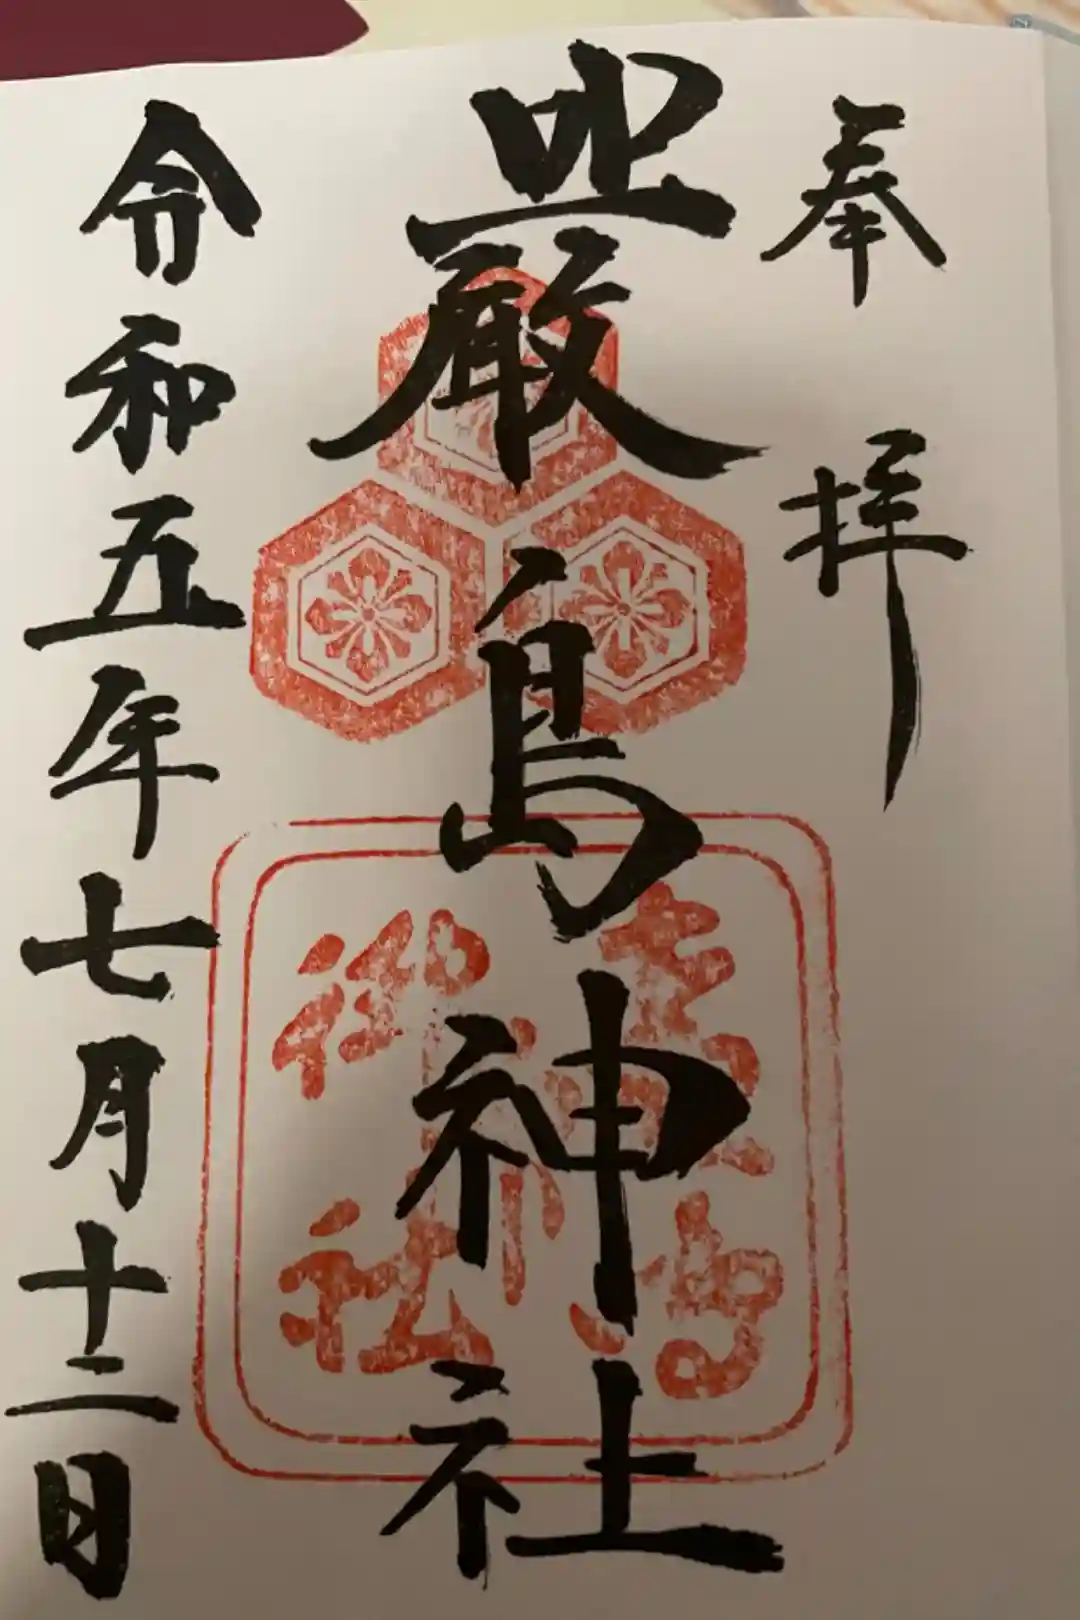 奉拝
嚴島神社
嚴島神社
令和五年七月十二日